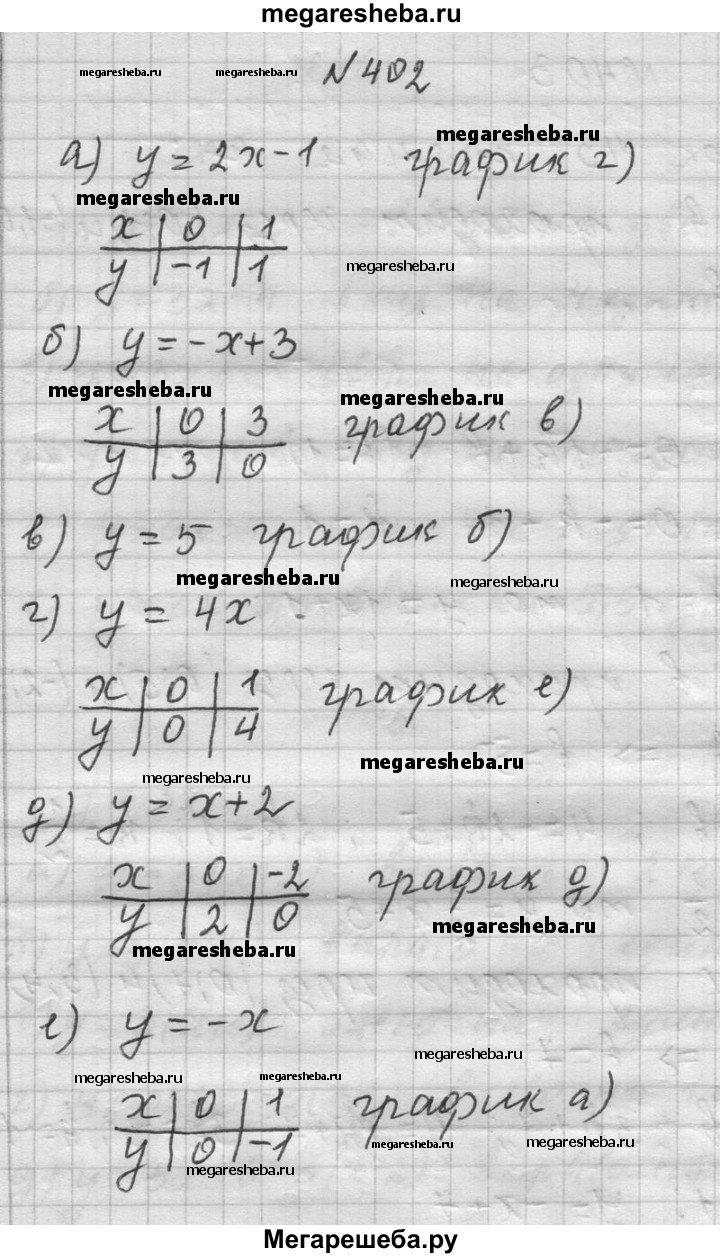 megaresheba.ru
megaresheba.ru megaresheba.ru №402
megaresheba.ru
а) y = 2x - 1 график г)
megaresheba.ru
x | 0 | 1
megaresheba.ru
y | -1 | 1
б) y = -x + 3
megaresheba.ru megaresheba.ru
x | 0 | 3 график в)
y | 3 | 0
в) y = 5 график б)
megaresheba.ru megaresheba.ru
г) y = 4x
x | 0 | 1 график е)
y | 0 | 4
megaresheba.ru
megaresheba.ru
д) y = x + 2
x | 0 | -2 график д)
y | 2 | 0
megaresheba.ru
megaresheba.ru
е) y = -x
megaresheba.ru
megaresheba.ru megaresheba.ru
x | 0 | 1 график а)
y | 0 | -1
megaresheba.ru megaresheba.ru
megaresheba.ru
Мегарешеба.ру